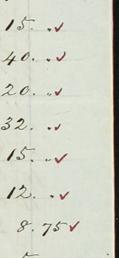 15. „ ✓
40. „ ✓
20. „ ✓
32. „ ✓
15. „ ✓
12. „ ✓
8.75 ✓